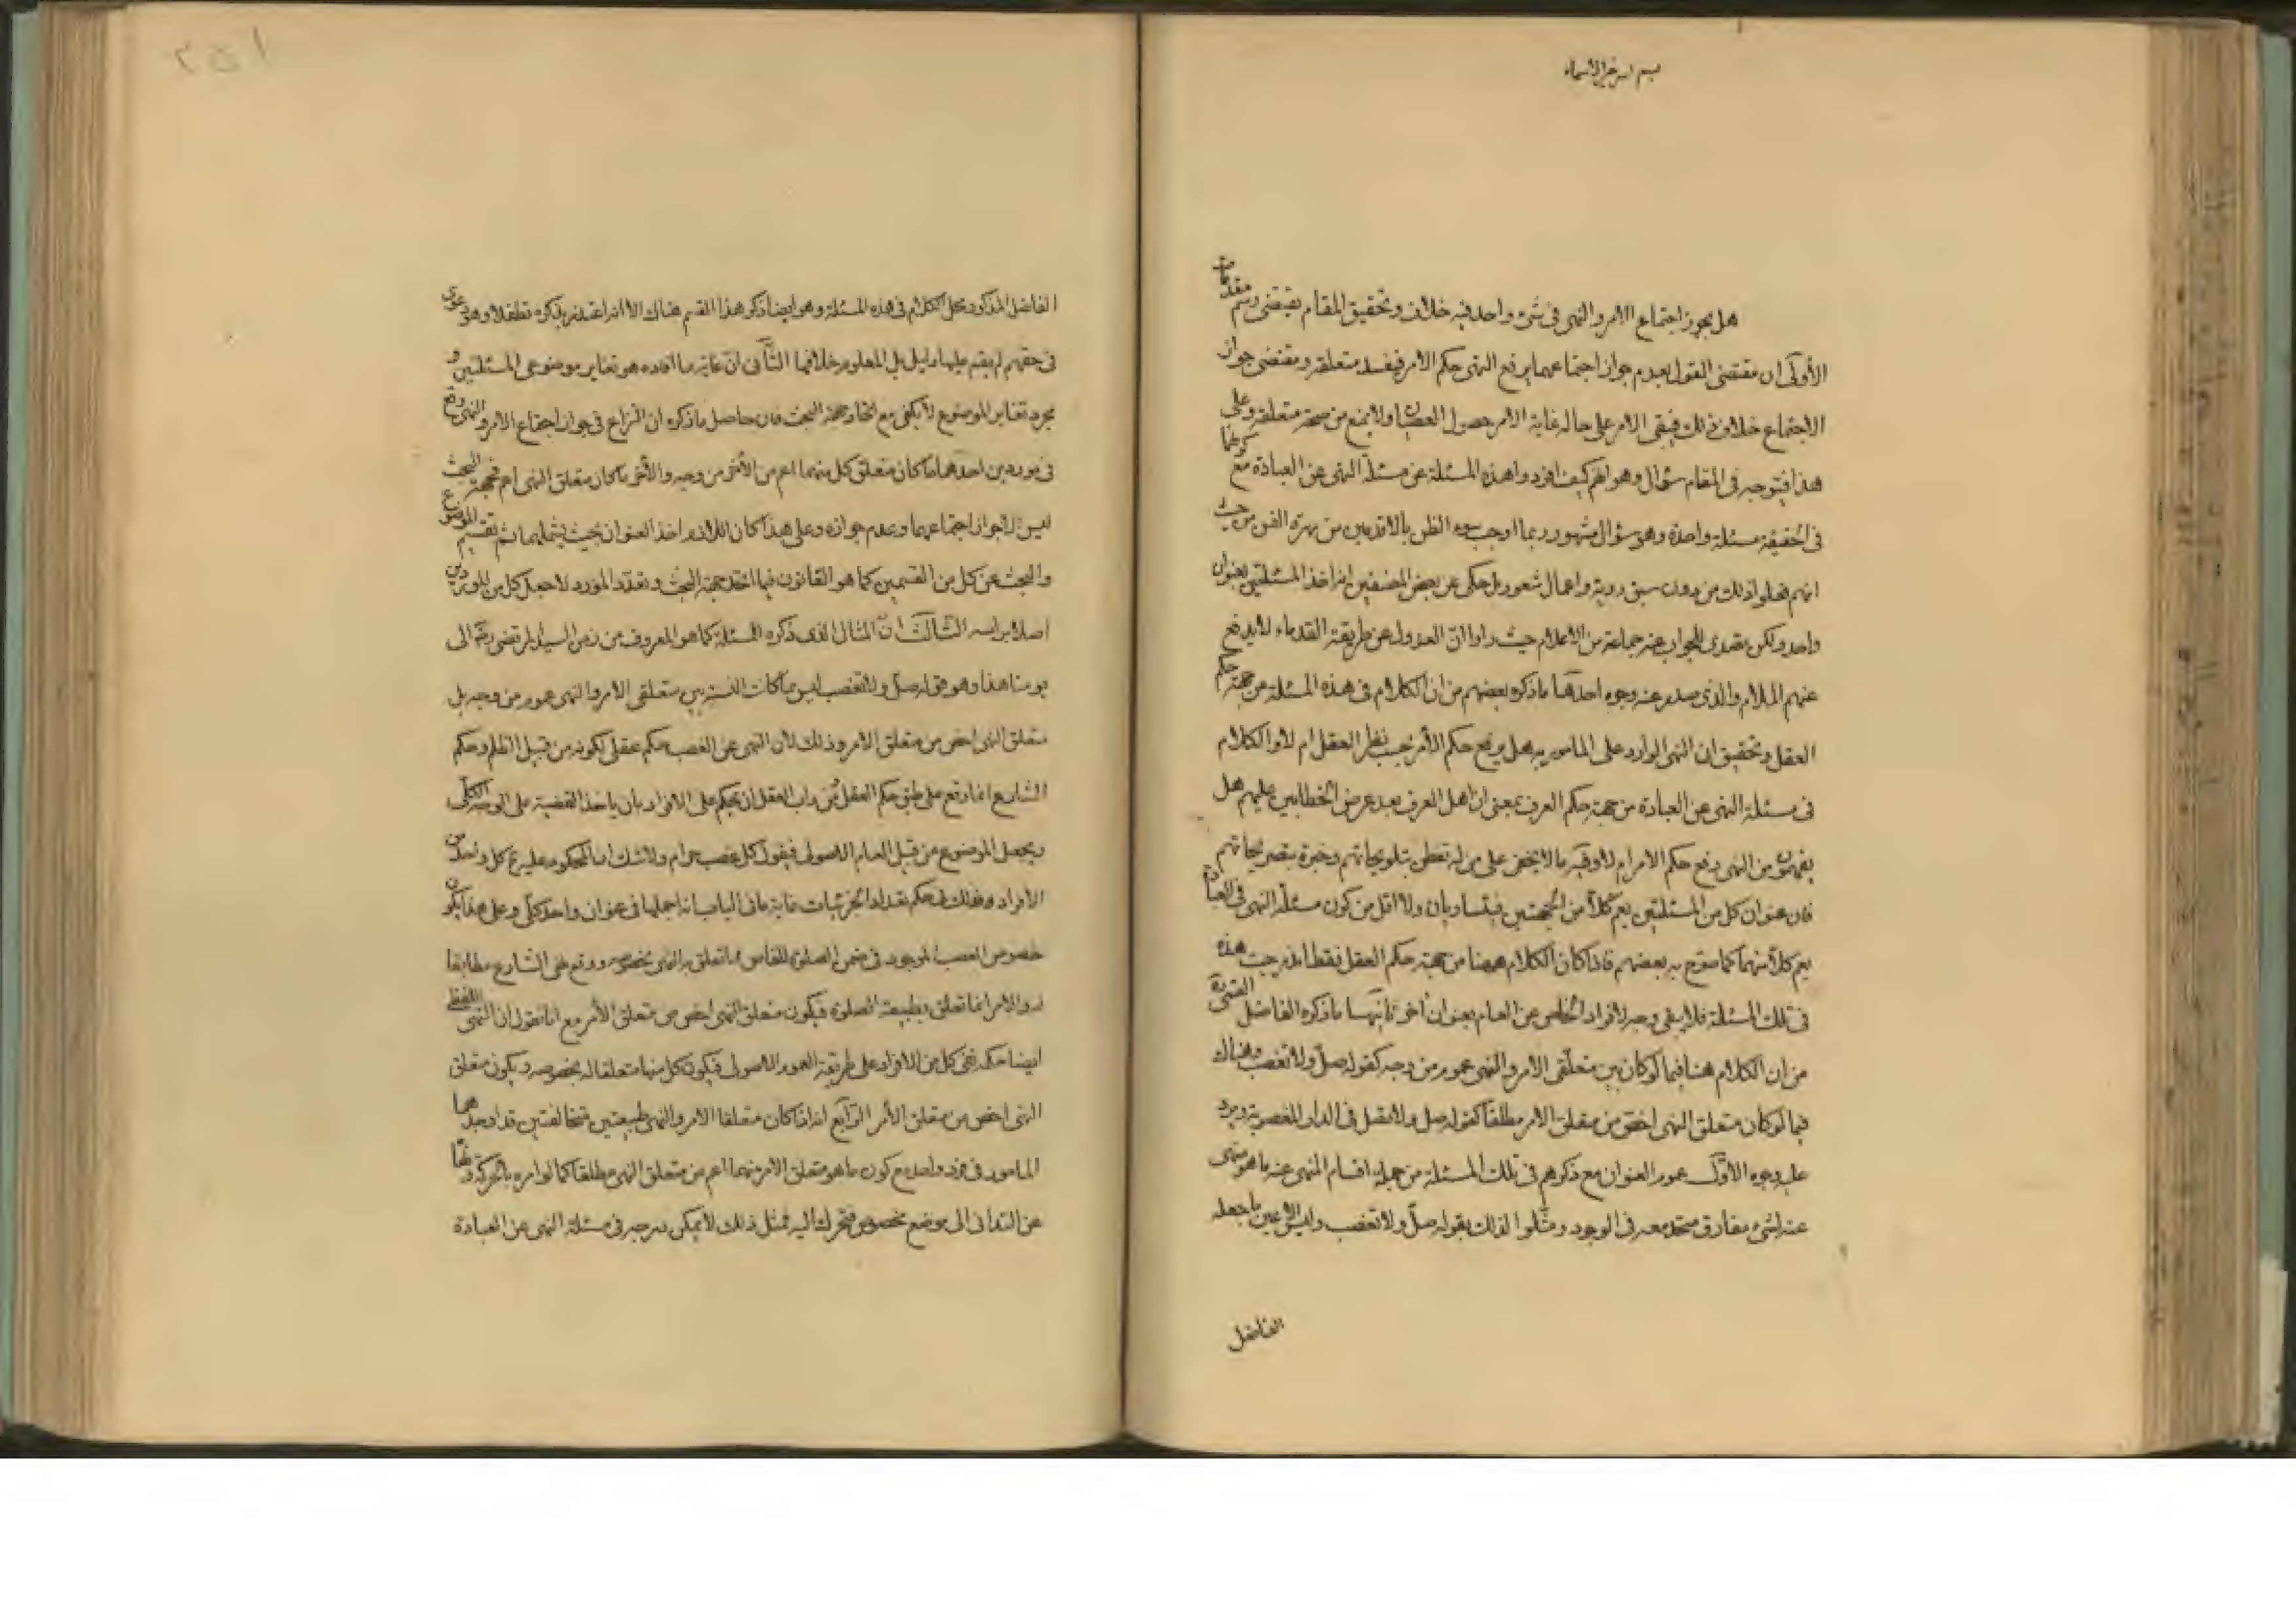 بسم الله خير الاسماء
هل يجوز اجتماع الامر والنهى فى شىء واحد فيه خلاف وتحقيق المقام يقتضى رسم مقدمات
الأولى ان مقتضى القول بعدم جواز اجتماعهما يرفع النهى حكم الامر فيفسد متعلقه ومقتضى جواز
الاجتماع خلاف ذلك فيبقى الامر على حاله غاية الامر حصول العصيان ولا يمنع من صحة متعلقه وعلى
هذا فيتوجه فى المقام سؤال وهو انهم كيف افردوا هذه المسئلة عن مسئلة النهى عن العبادة مع كونهما
فى الحقيقة مسئلة واحدة وهو سؤال مشهور ربما اوجب سوء الظن بالاقدمين من مهرة الفن من حيث
انهم فعلوا ذلك من دون سبق روية واعمال شعور بل حكى عن بعض المصنفين انه اخذ المسئلتين بعنوان
واحد ولكن تصدى للجواب عنه جماعة من الاعلام حيث راوا ان العدول عن طريقة القدماء لا يدفع
عنهم الملام والذى صدر عنه وجوه احدها ما ذكره بعضهم من ان الكلام فى هذه المسئلة من جهة حكم
العقل وتحقيق ان النهى الوارد على المامور به هل يرفع حكم الأمر بحسب نظر العقل ام لا والكلام
فى مسئلة النهى عن العبادة من جهة حكم العرف بمعنى ان اهل العرف بعد عرض الخطابين عليهم هل
يفهمون من النهى رفع حكم الامر ام لا وفيه ما لا يخفى على من له تفطن بتلويحاتهم وخبرة بتصريحاتهم
فان عنوان كل من المسئلتين يعم كلاً من الجهتين فيتساويان ولا اقل من كون مسئلة النهى فى العبادة
يعم كلاً منهما كما صرح به بعضهم فاذا كان الكلام هيهنا من جهة حكم العقل فقط اندرجت هذه
فى تلك المسئلة فلا يبقى وجه لافراد الخاص عن العام بعنوان اخر ثانيها ما ذكره الفاضل القمى ره
من ان الكلام هنا فيما لو كان بين متعلقى الامر والنهى عموم من وجه كقوله صل ولا تغصب وهناك
فيما لو كان متعلق النهى اخص من متعلق الامر مطلقا كقوله صل ولا تصل فى الدار المغصوبة ويرد
عليه وجوه الاول عموم العنوان مع ذكرهم فى تلك المسئلة من جملة اقسام المنهى عنه ما هو منهى
عنه لشىء مفارق متحد معه فى الوجود ومثلوا لذلك بقوله صل ولا تغصب وليس الا عين ما جعله
الفاضل
٢٥١
الفاضل المذكور محل الكلام فى هذه المسئلة وهو ايضا ذكر هذا القسم هناك الا انه اعتذر بذكره تطفلا وهو دعوى
فى حقهم لم يقم عليها دليل بل المعلوم خلافها الثانى ان غاية ما افاده هو تغاير موضوعى المسئلتين و
مجرد تغاير الموضوع لا يكفى مع اتحاد جهة البحث فان حاصل ما ذكره ان النزاع فى جواز اجتماع الامر والنهى وقع
فى موردين احدهما ما كان متعلق كل منهما اعم من الأخر من وجه والأخر ما كان متعلق النهى اعم فجهة البحث
ليس الا جواز اجتماعهما وعدم جوازه وعلى هذا كان اللازم اخذ العنوان بحيث يشملهما ثم تقسيم الموضوع
والبحث عن كل من القسمين كما هو القانون فيما اتحد جهة البحث وتعدد المورد لا جعل كل من الموردين
اصلا براسه الثالث ان المثال الذى ذكره للمسئلة كما هو المعروف من زمن السيد المرتضى ره الى
يومنا هذا وهو قوله صل ولا تغصب ليس مما كانت النسبة بين متعلقى الامر والنهى عموم من وجه بل
متعلق النهى اخص من متعلق الامر وذلك لأن النهى عن الغصب حكم عقلى لكونه من قبيل الظلم وحكم
الشارع انما وقع على طبق حكم العقل ومن داب العقل ان يحكم على الافراد بان ياخذ القضية على الوجه الكلى
ويجعل الموضوع من قبيل العام الاصولى فيقول كل غصب حرام ولا شك ان المحكوم عليه ح كل واحد من
الأفراد وذلك فى حكم تعداد الجزئيات غاية ما فى الباب انه اجملها فى عنوان واحد كلى وعلى هذا يكون
خصوص الغصب الموجود فى ضمن الصلوة للغاصب مما تعلق به النهى بخصوصه ووقع نهى الشارع مطابقا
له والامر انما تعلق بطبيعة الصلوة فيكون متعلق النهى اخص من متعلق الأمر مع انا نقول ان النهى اللفظى
ايضا حكمه نفى كل من الافراد على طريقة العموم الاصولى فيكون كل منها متعلقا له بخصوصه ويكون متعلق
النهى اخص من متعلق الأمر الرابع انه اذا كان متعلقا الامر والنهى طبيعتين متخالفتين قد اوجدهما
المامور فى فرد واحد مع كون ما هو متعلق الامر منهما اعم من متعلق النهى مطلقا كما لو امره بالحركة ونهاه
عن التدانى الى موضع مخصوص فتحرك اليه فمثل ذلك لا يمكن درجه فى مسئلة النهى عن العبادة